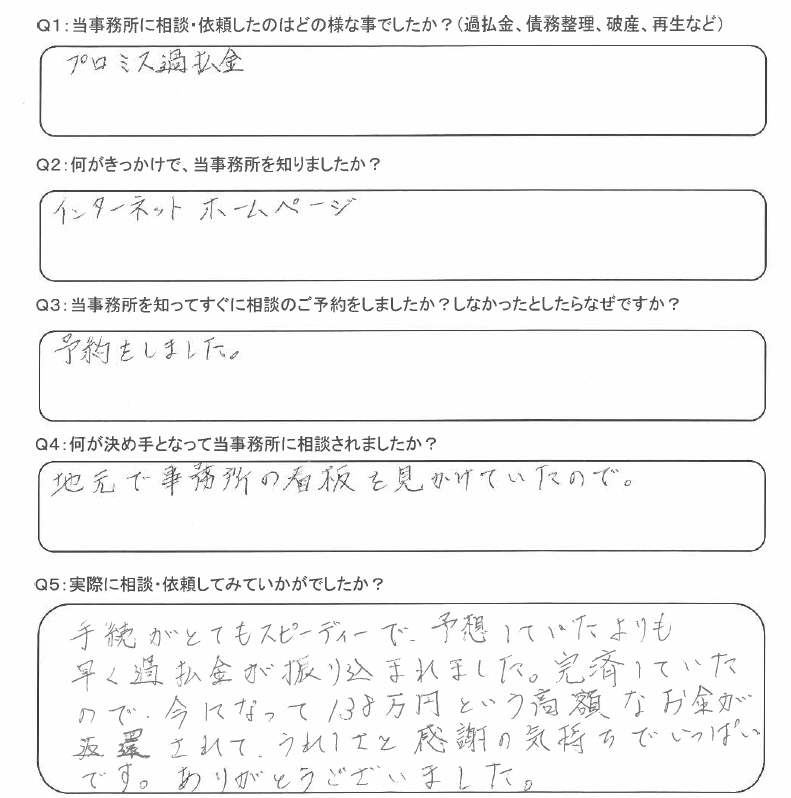 Q1：当事務所に相談・依頼したのはどの様な事でしたか？（過払金、債務整理、破産、再生など）
プロミス過払金
Q2：何がきっかけで、当事務所を知りましたか？
インターネット ホームページ
Q3：当事務所を知ってすぐに相談のご予約をしましたか？しなかったとしたらなぜですか？
予約をしました。
Q4：何が決め手となって当事務所に相談されましたか？
地元で事務所の看板を見かけていたので。
Q5：実際に相談・依頼してみていかがでしたか？
手続がとてもスピーディーで、予想していたよりも
早く過払金が振り込まれました。完済していた
ので、今になって138万円という高額なお金が
返還されて、うれしさと感謝の気持ちでいっぱい
です。ありがとうございました。